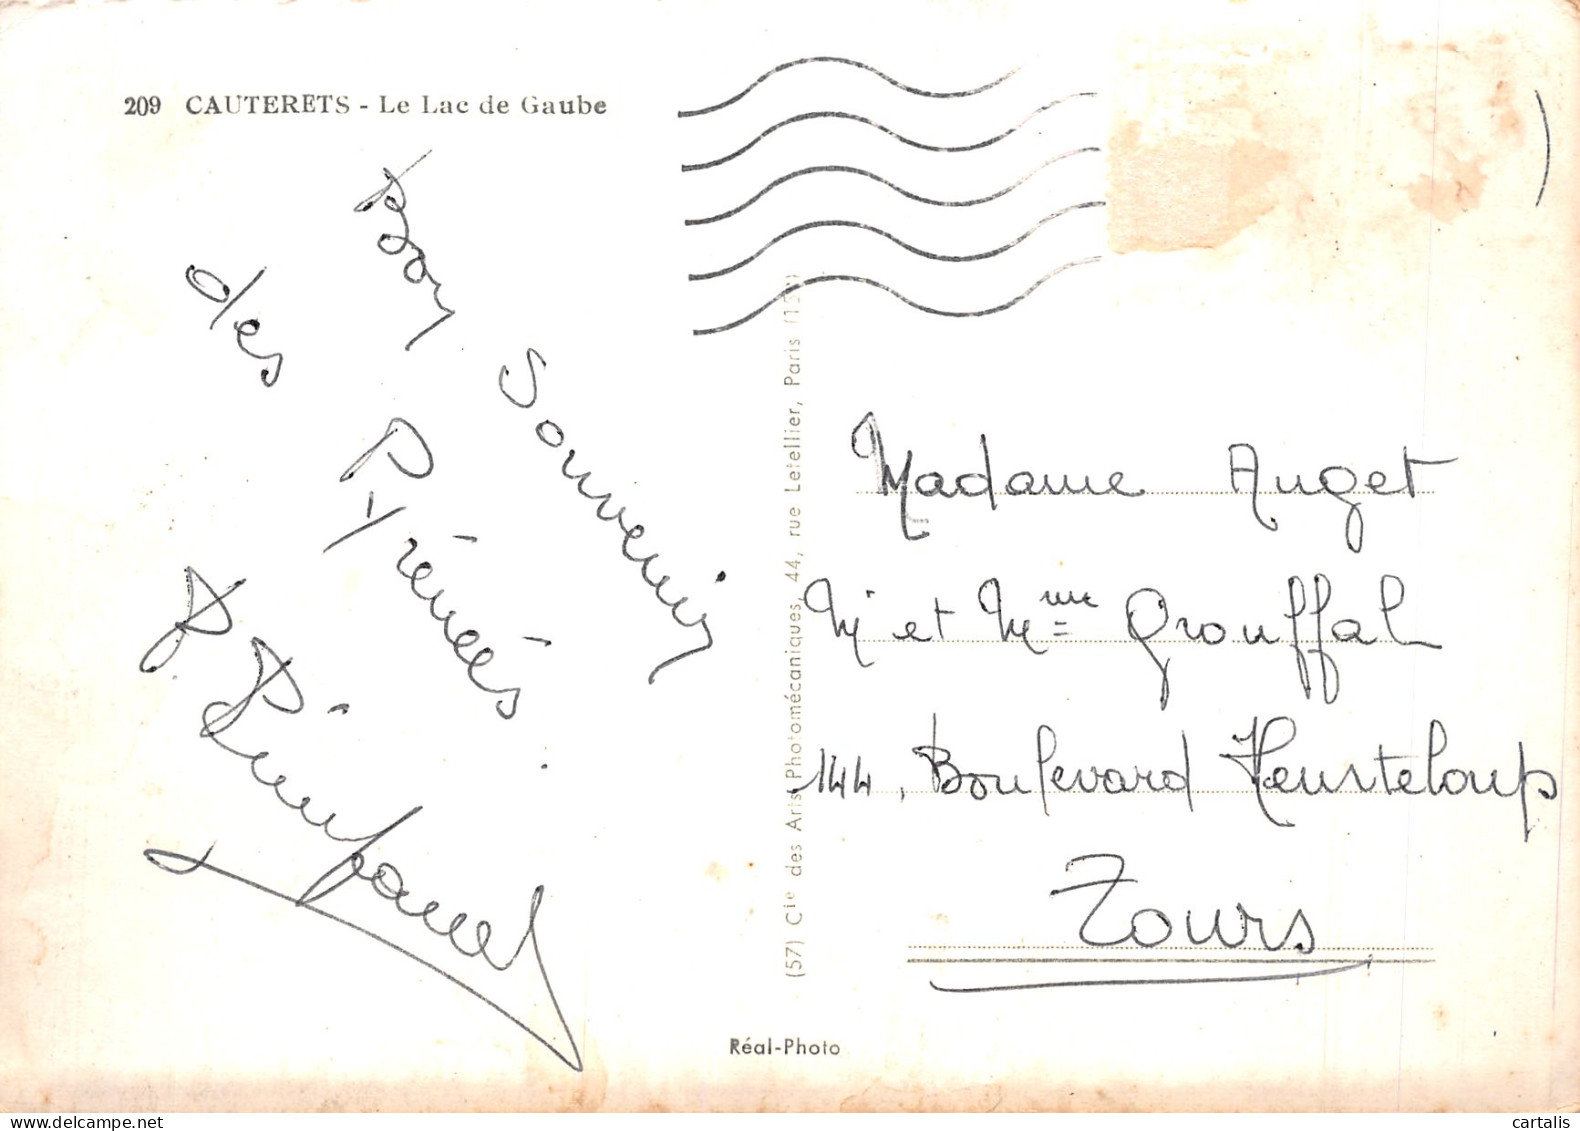 209 CAUTERETS - Le Lac de Gaube
Bon Souvenir
des Pyrénées.
P.
(57) Cie des Arts Photomécaniques, 44, rue Letellier, Paris (15e)
Madame Auget
M et Mme Grouffal
144, Boulevard Heurteloup
Tours
Réal-Photo
cartalis